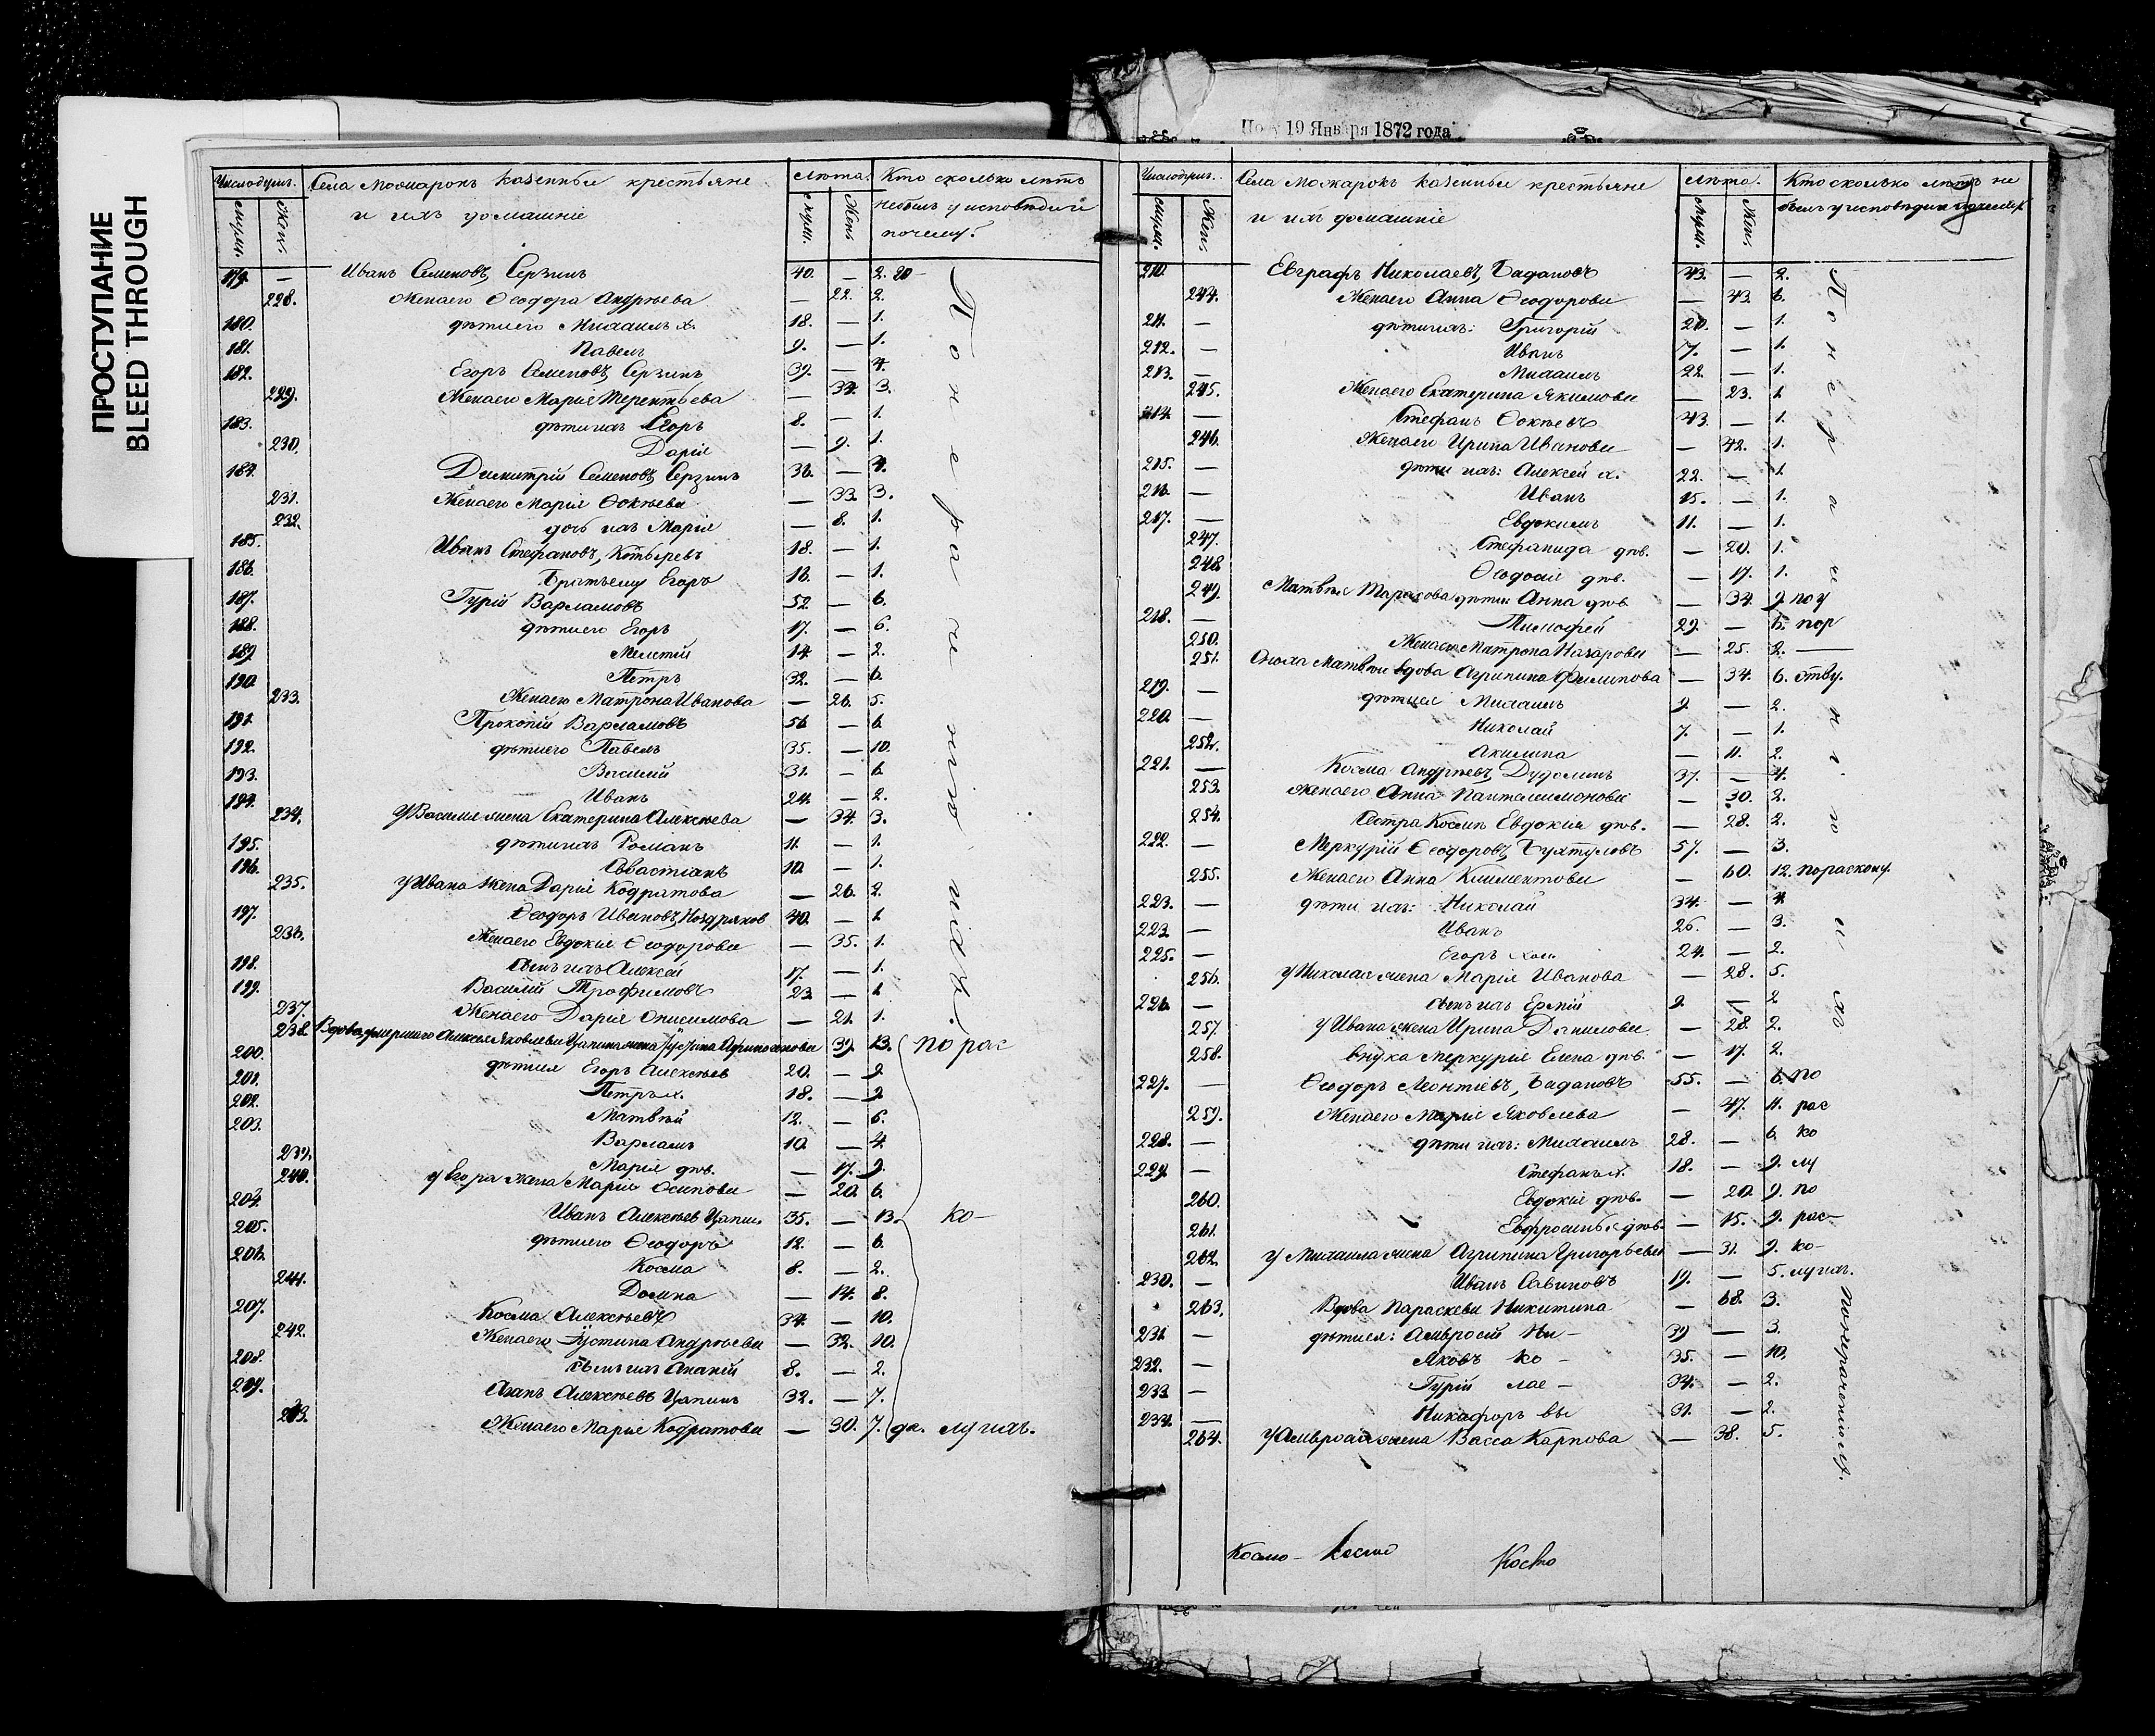 ПРОСТУПАНИЕ
BLEED THROUGH
19 Января 1872 года
Число душъ. Села Можарокъ казенные крестьяне Лѣта. Кто сколько лѣтъ
и ихъ домашніе небылъ у исповѣди и
Муж. Жен. Муж. Жен. почему?
179. — Иванъ Семеновъ, Серзинъ 40. — 2.
228. Жена его Ѳеодора Андрѣева — 22. 2.
180. дѣти его Михаилъ х. 18. — 1.
181. Павелъ 9. — 1.
182. Егоръ Семеновъ, Серзинъ 39. — 4.
229. Жена его Марія Терентьева — 34. 3.
183. дѣти ихъ Егоръ 8. — 1.
230. Дарія — 9. 1.
184. Димитрій Семеновъ, Серзинъ 36. — 4.
231. Жена его Марія Ѳокѣева — 33. 3.
232. дочь ихъ Марія — 8. 1.
185. Иванъ Стефановъ, 18. — 1.
186. Братъ ему Егоръ 16. — 1.
187. Гурій Варламовъ 52. — 6.
188. дѣти его Егоръ 17. — 6.
189. Мелетій 14. — 2.
190. Петръ 32. — 6.
233. Жена его Матрона Иванова — 26. 5.
191. Прокопій Варламовъ 56 — 6.
192. дѣти его Павелъ 35. — 10.
193. Василій 31. — 6.
194. Иванъ 24. — 2.
234. У Василія жена Екатерина Алексѣева — 34. 3.
195. дѣти ихъ Романъ 11. — 1.
196. Савастіанъ 10. — 1.
235. У Ивана жена Дарія Кодратова — 26. 2.
197. Ѳеодоръ Ивановъ, Ноздряков 40. — 1
236. Жена его Евдокія Ѳеодорова — 35. 1.
198. сынъ ихъ Алексѣй 17. — 1.
199. Василій Трофимовъ 23. — 1
237. Жена его Дарія Онисимова — 21. 1.
По нераченію ихъ.
238. Вдова умершаго Алексѣя Яковлева — 39. 13. по рас
200. дѣти ея Егоръ Алексѣевъ 20. — 9
201. Петръ х. 18. — 9
202. Матвѣй 12. — 6.
203. Варламъ 10. — 4
239. Марія дѣв. — 17. 9.
240. у Егора жена Марія Осипова — 20. 6.
204. Иванъ Алексѣевъ Цапин. 35. — 13. ко-
205. дѣти его Ѳеодоръ 12. — 6.
206. Косма 8. — 2.
241. Домна — 14. 8.
207. Косма Алексѣевъ 34. — 10.
242. Жена его Іустина Андрѣева — 32. 10.
208. сынъ ихъ Ананій 8. — 2.
209. Агапъ Алексѣевъ Цапинъ 32. — 7.
243. Жена его Марія Кодратова — 30. 7.
Число душъ. Села Можарокъ казенные крестьяне Лѣта. Кто сколько лѣтъ не
и ихъ домашніе былъ у исповѣди и почему
Муж. Жен. Муж. Жен.
210. Евграфъ Николаевъ, Бадановъ 43. — 2.
244. Жена его Анна Ѳеодорова — 43. 6.
211. — дѣти ихъ: Григорій 20. — 1.
212. — Иванъ 7. — 1.
213. — Михаилъ 22. — 1.
245. Жена его Екатерина Якимова — 23. 1
214. — Стефанъ Ѳокѣевъ 43. — 1.
246. Жена его Ирина Иванова — 42. 1.
215. — дѣти ихъ: Алексѣй х. 22. — 1.
216. — Иванъ 15. — 1.
217. — Евдокимъ 11. — 1.
247. Стефанида дѣв. — 20. 1.
248. Ѳеодосія дѣв. — 17. 1.
249. Матвѣя Тарасова дѣти: Анна дѣв. — 34. 9. по у
218. — Тимофей 29. — 5. пор
250. Жена его Матрона Назарова — 25. 2. —
251. Матвѣя вдова Агрипина Филипова — 34. 6. ству.
219. — дѣти ея Михаилъ 9. — 2.
220. — Николай 7. — 1.
252. Акилина — 11. 2.
221. — Косма Андрѣевъ, Дудолинъ 37. — 4.
253. Жена его Анна Пантелимонова — 30. 2.
254. Сестра Космы Евдокія дѣв. — 28. 2.
222. — Меркурій Ѳеодоровъ, Бухтуловъ 57. — 3.
255. Жена его Анна Климентова — 60. 12. по расколу.
223. — дѣти ихъ: Николай 34. — 4
223. — Иванъ 26. — 3.
225. — Егоръ хол. 24. — 2.
256. У Николая жена Марія Иванова — 28. 5.
226. — сынъ ихъ 9. — 2
257. У Ивана жена Ирина Данилова — 28. 2.
258. внука Меркурія Елена дѣв. — 17. 2.
227. — Ѳеодоръ Леонтіевъ, Бадановъ 55. — 6. по
259. Жена его Марія Яковлева — 47. 11. рас
228. — дѣти ихъ: Михаилъ 28. — 6. ко
229. — Стефанъ х. 18. — 9. лу
260. Евдокія дѣв. — 20. 9. по
261. Евфросинья дѣв. — 15. 9. рас-
262. У Михаила жена Агрипина Григорьева — 31. 9. ко-
230. — Иванъ Савиновъ 19. — 5. лу ихъ.
263. Вдова Параскева Никитина — 68. 3.
231. — дѣти ея: Амвросій Ни- 39 — 3.
232. — Яковъ ко- 35. — 10.
233. — Гурій лае- 34. — 2.
234. — Никифоръ вы 31. — 2.
264. У Амвросія жена Васса Карпова — 38. 5.
По нераченію ихъ
по нераченію их.
Космо- Космо Космо